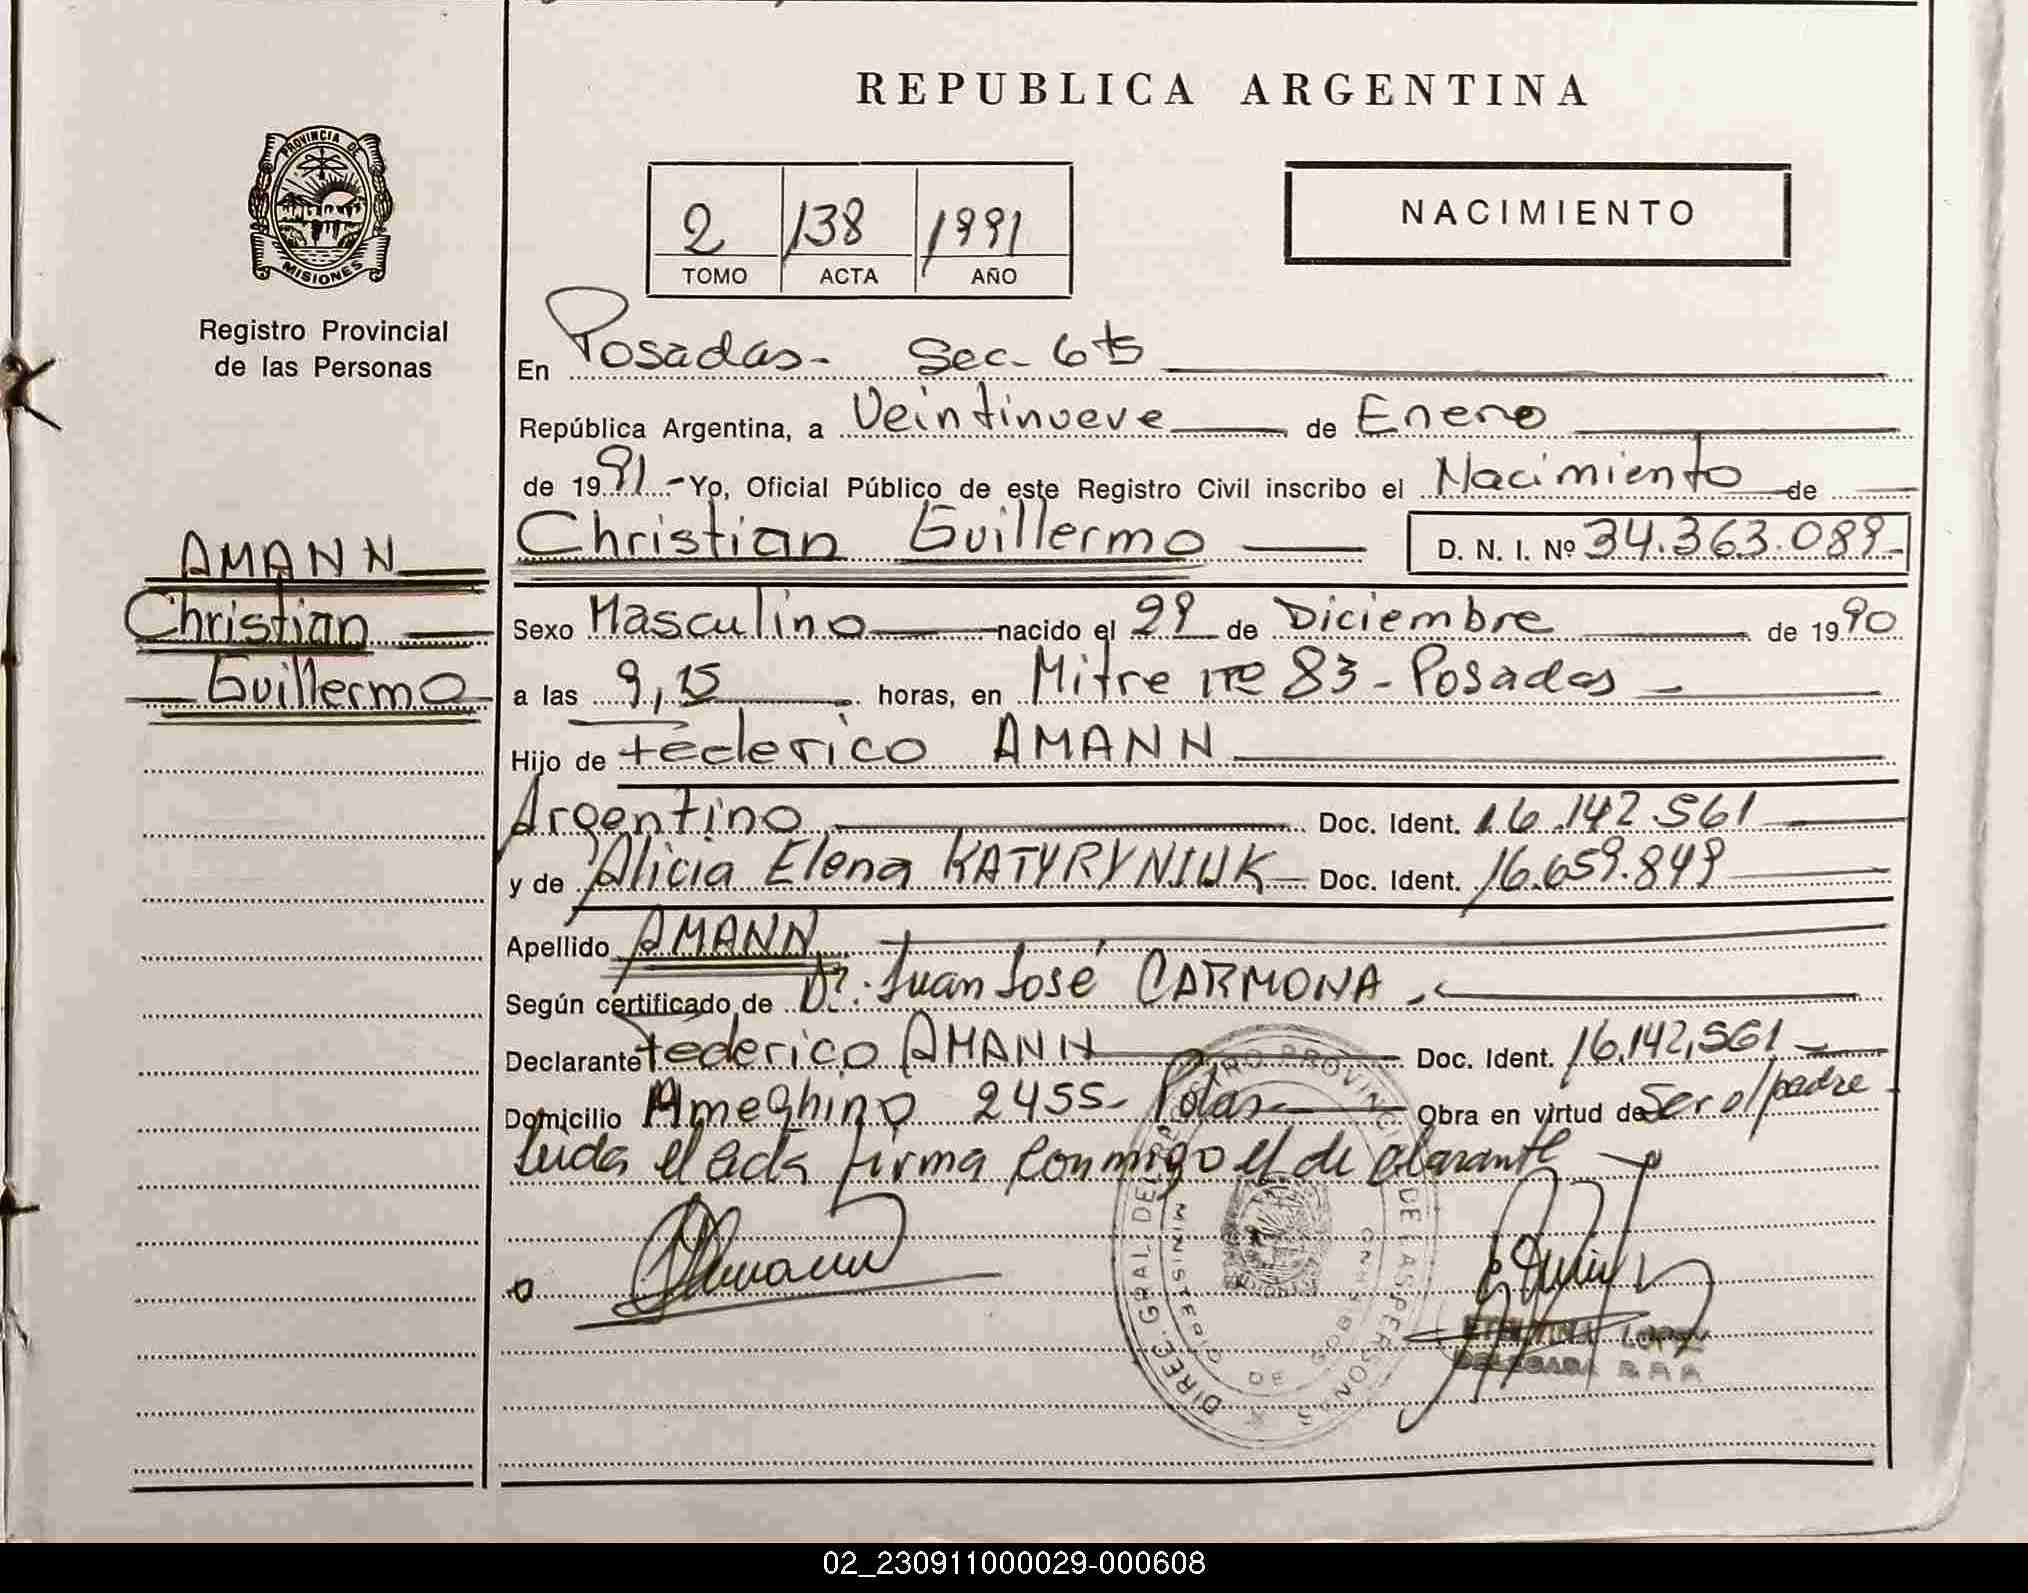 REPUBLICA ARGENTINA
PROVINCIA DE
MISIONES
Registro Provincial
de las Personas
2 138 1991
TOMO ACTA AÑO
NACIMIENTO
En Posadas- Sec- 6ta
República Argentina, a Veintinueve de Enero
de 1991.- Yo, Oficial Público de este Registro Civil inscribo el Nacimiento de
Christian Guillermo D. N. I. Nº 34.363.089
AMANN
Christian
Guillermo
Sexo Masculino nacido el 29 de Diciembre de 1990
a las 9,15 horas, en Mitre Nº 83 - Posadas
Hijo de Federico AMANN
Argentino Doc. Ident. 16.142.561
y de Alicia Elena KATYRYNIUK Doc. Ident. 16.659.849
Apellido AMANN
Según certificado de Dr. Juan José CARMONA
Declarante Federico AMANN Doc. Ident. 16.142,561
Domicilio Ameghino 2455- Pdas- Obra en virtud de Ser el padre
Leida el acta firma conmigo el declarante
DIREC. GRAL. DEL REGISTRO PROVINCIAL DE LAS PERSONAS
MINISTERIO DE GOBIERNO
LOPEZ
DELEGADA
02_230911000029-000608